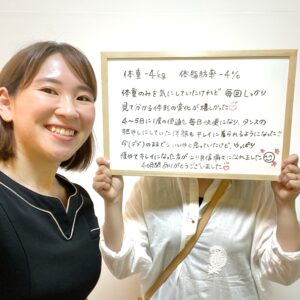 体重 -4kg　体脂肪率 -4%
体重のみを気にしていたけれど 毎回しっかり
見て分かる体型の変化が嬉しかった
4～5日に1度の便通も毎日快便になり タンスの
肥やしにしていた洋服もキレイに着られるようになった
今のままでいいやと思っていたけど、やっぱり
痩せてキレイになった方がより自信満々になれました
4ヶ月間ありがとうございました